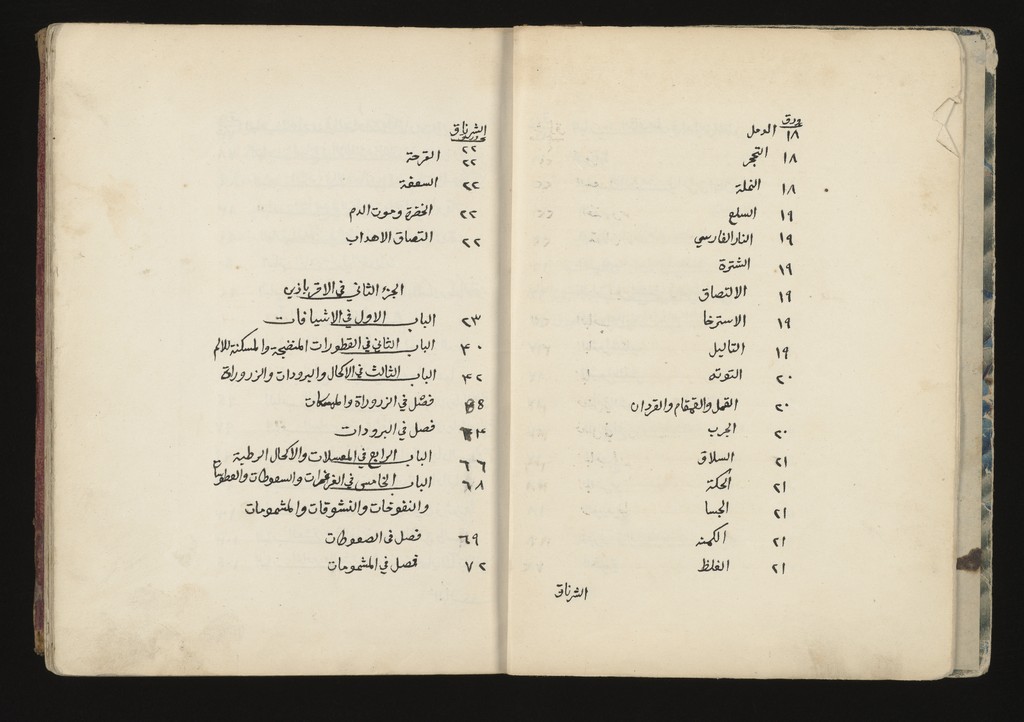 ورق
١٨ الدمل
١٨ التحجر
١٨ النملة
١٩ السلع
١٩ النار الفارسي
١٩ الشترة
١٩ الالتصاق
١٩ الاسترخا
١٩ التاليل
٢٠ التوته
٢٠ القمل والقمقام والقردان
٢٠ الجرب
٢١ السلاق
٢١ الحكة
٢١ الجسا
٢١ الكمنه
٢١ الغلظ
الشرناق
الشرناق
ورق
٢٢
٢٢ القرحة
٢٢ السعفة
٢٢ الخضرة وموت الدم
٢٢ التصاق الاهداب
الجزء الثاني في الاقرباذين
٢٣ الباب الاول في الاشيافات
٤٠ الباب الثاني في القطورات المنضجة والمسكنة للالم
٤٢ الباب الثالث في الاكحال والبرودات والزرورات
فصل في الزروراة
فصل في البرودات
٦٦ الباب الرابع في المعسلات والاكحال الرطبة
٦٨ الباب الخامس في الغرغرات والسعوطات والعطوسات
والنفوخات والنشوقات والمشمومات
٦٩ فصل في الصعوطات
٧٢ فصل في المشمومات